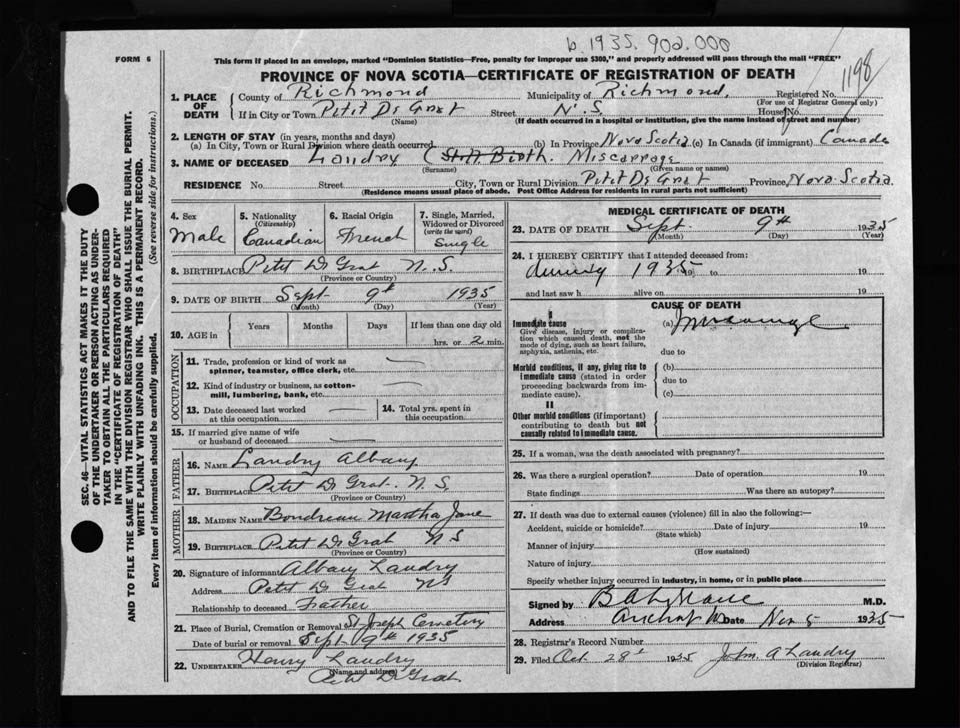 b. 1935. 902.000
1198
FORM 6
This form if placed in an envelope, marked "Dominion Statistics—Free, penalty for improper use $300," and properly addressed will pass through the mail "FREE"
PROVINCE OF NOVA SCOTIA—CERTIFICATE OF REGISTRATION OF DEATH
1. PLACE OF DEATH
County of Richmond Municipality of Richmond, Registered No.
(For use of Registrar General only)
If in City or Town Petit De Grat Street N.S. House No.
(Name) (If death occurred in a hospital or institution, give the name instead of street and number)
2. LENGTH OF STAY (in years, months and days)
(a) In City, Town or Rural Division where death occurred (b) In Province Nova Scotia (c) In Canada (if immigrant) Canada
3. NAME OF DECEASED Landry (Still Birth. Miscarrage
(Surname) (Given name or names)
RESIDENCE No. Street City, Town or Rural Division Petit De Grat Province Nova Scotia.
(Residence means usual place of abode. Post Office Address for residents in rural parts not sufficient)
4. Sex
Male
5. Nationality
(Citizenship)
Canadian
6. Racial Origin
French
7. Single, Married, Widowed or Divorced
(write the word)
Single
8. BIRTHPLACE Petit D Grat N.S.
(Province or Country)
9. DATE OF BIRTH Sept 9th 1935
(Month) (Day) (Year)
10. AGE in Years Months Days If less than one day old
hrs. or 2 min.
OCCUPATION
11. Trade, profession or kind of work as
spinner, teamster, office clerk, etc.
12. Kind of industry or business, as cotton-
mill, lumbering, bank, etc.
13. Date deceased last worked
at this occupation
14. Total yrs. spent in
this occupation
15. If married give name of wife
or husband of deceased
FATHER
16. NAME Landry Albany
17. BIRTHPLACE Petit D Grat. N.S.
(Province or Country)
MOTHER
18. MAIDEN NAME Boudreau Martha Jane
19. BIRTHPLACE Petit D Grat N S
(Province or Country)
20. Signature of informant Albany Landry
Address Petit D Grat NS
Relationship to deceased Father
21. Place of Burial, Cremation or Removal St Joseph Cemetery
Date of burial or removal Sept 9th 1935
22. UNDERTAKER Henry Landry
(Name and address)
Petit D Grat
MEDICAL CERTIFICATE OF DEATH
23. DATE OF DEATH Sept. 9th 1935
(Month) (Day) (Year)
24. I HEREBY CERTIFY that I attended deceased from:
during 1935 19 to 19
and last saw h alive on 19
CAUSE OF DEATH
I
Immediate cause
Give disease, injury or complica-
tion which caused death, not the
mode of dying, such as heart failure,
asphyxia, asthenia, etc.
(a)
due to
Morbid conditions, if any, giving rise to
immediate cause (stated in order
proceeding backwards from im-
mediate cause).
(b)
due to
(c)
II
Other morbid conditions (if important)
contributing to death but not
causally related to immediate cause.
25. If a woman, was the death associated with pregnancy?
26. Was there a surgical operation? Date of operation 19
State findings Was there an autopsy?
27. If death was due to external causes (violence) fill in also the following:—
Accident, suicide or homicide? Date of injury 19
(State which)
Manner of injury
(How sustained)
Nature of injury
Specify whether injury occurred in industry, in home, or in public place
Signed by M.D.
Address Arichat Date Nov 5 1935
28. Registrar's Record Number
29. Filed Oct 28th 1935 John A Landry
(Division Registrar)
SEC. 46—VITAL STATISTICS ACT MAKES IT THE DUTY
OF THE UNDERTAKER OR PERSON ACTING AS UNDER-
TAKER TO OBTAIN ALL THE PARTICULARS REQUIRED
IN THE "CERTIFICATE OF REGISTRATION OF DEATH"
AND TO FILE THE SAME WITH THE DIVISION REGISTRAR WHO SHALL ISSUE THE BURIAL PERMIT.
WRITE PLAINLY WITH UNFADING INK. THIS IS A PERMANENT RECORD.
Every item of information should be carefully supplied. (See reverse side for instructions.)